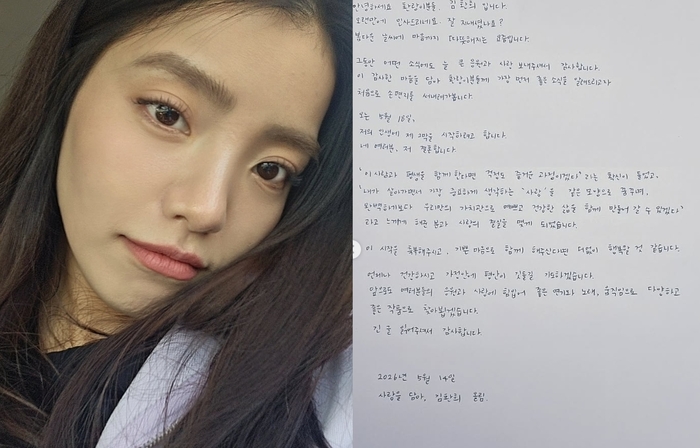 안녕하세요 환랑이분들 김환희 입니다.
오랜만에 인사드리네요. 잘 지내셨나요?
봄다운 날씨에 마음까지 따뜻해지는 요즘입니다.
그동안 어떤 소식에도 늘 큰 응원과 사랑 보내주셔서 감사합니다.
이 감사한 마음을 담아 환랑이분들께 가장 먼저 좋은 소식을 알려드리고자
처음으로 손편지를 써내려가봅니다.
오는 5월
저의 인생에 제 2막을 시작하려고 합니다.
네 여러분, 저 결혼합니다.
'이 사람과 평생을 함께 한다면 걱정도 즐거운 과정이겠다' 라는 확신이 들었고,
'내가 살아가면서 가장 중요하게 생각하는 '사랑'을 닮은 모양으로 품우며,
완벽하기보다 우리만의 가치관으로 예쁘고 건강한 삶을 함께 만들어 갈 수 있겠다'
라고 느끼게 해준 분과 사랑의 결실을 맺게 되었습니다.
이 시작을 축복해주시고, 기쁜 마음으로 함께 해주신다면 더없이 행복할 것 같습니다.
언제나 건강하시고 가정안에 평안이 깃들길 기도하겠습니다.
앞으로도 여러분들의 응원과 사랑에 힘입어 좋은 연기와 노래, 움직임으로 다양하고
좋은 작품으로 찾아뵙겠습니다.
긴 글 읽어주셔서 감사합니다.
2026년 5월 14일
사랑을 담아, 김환희 올림.